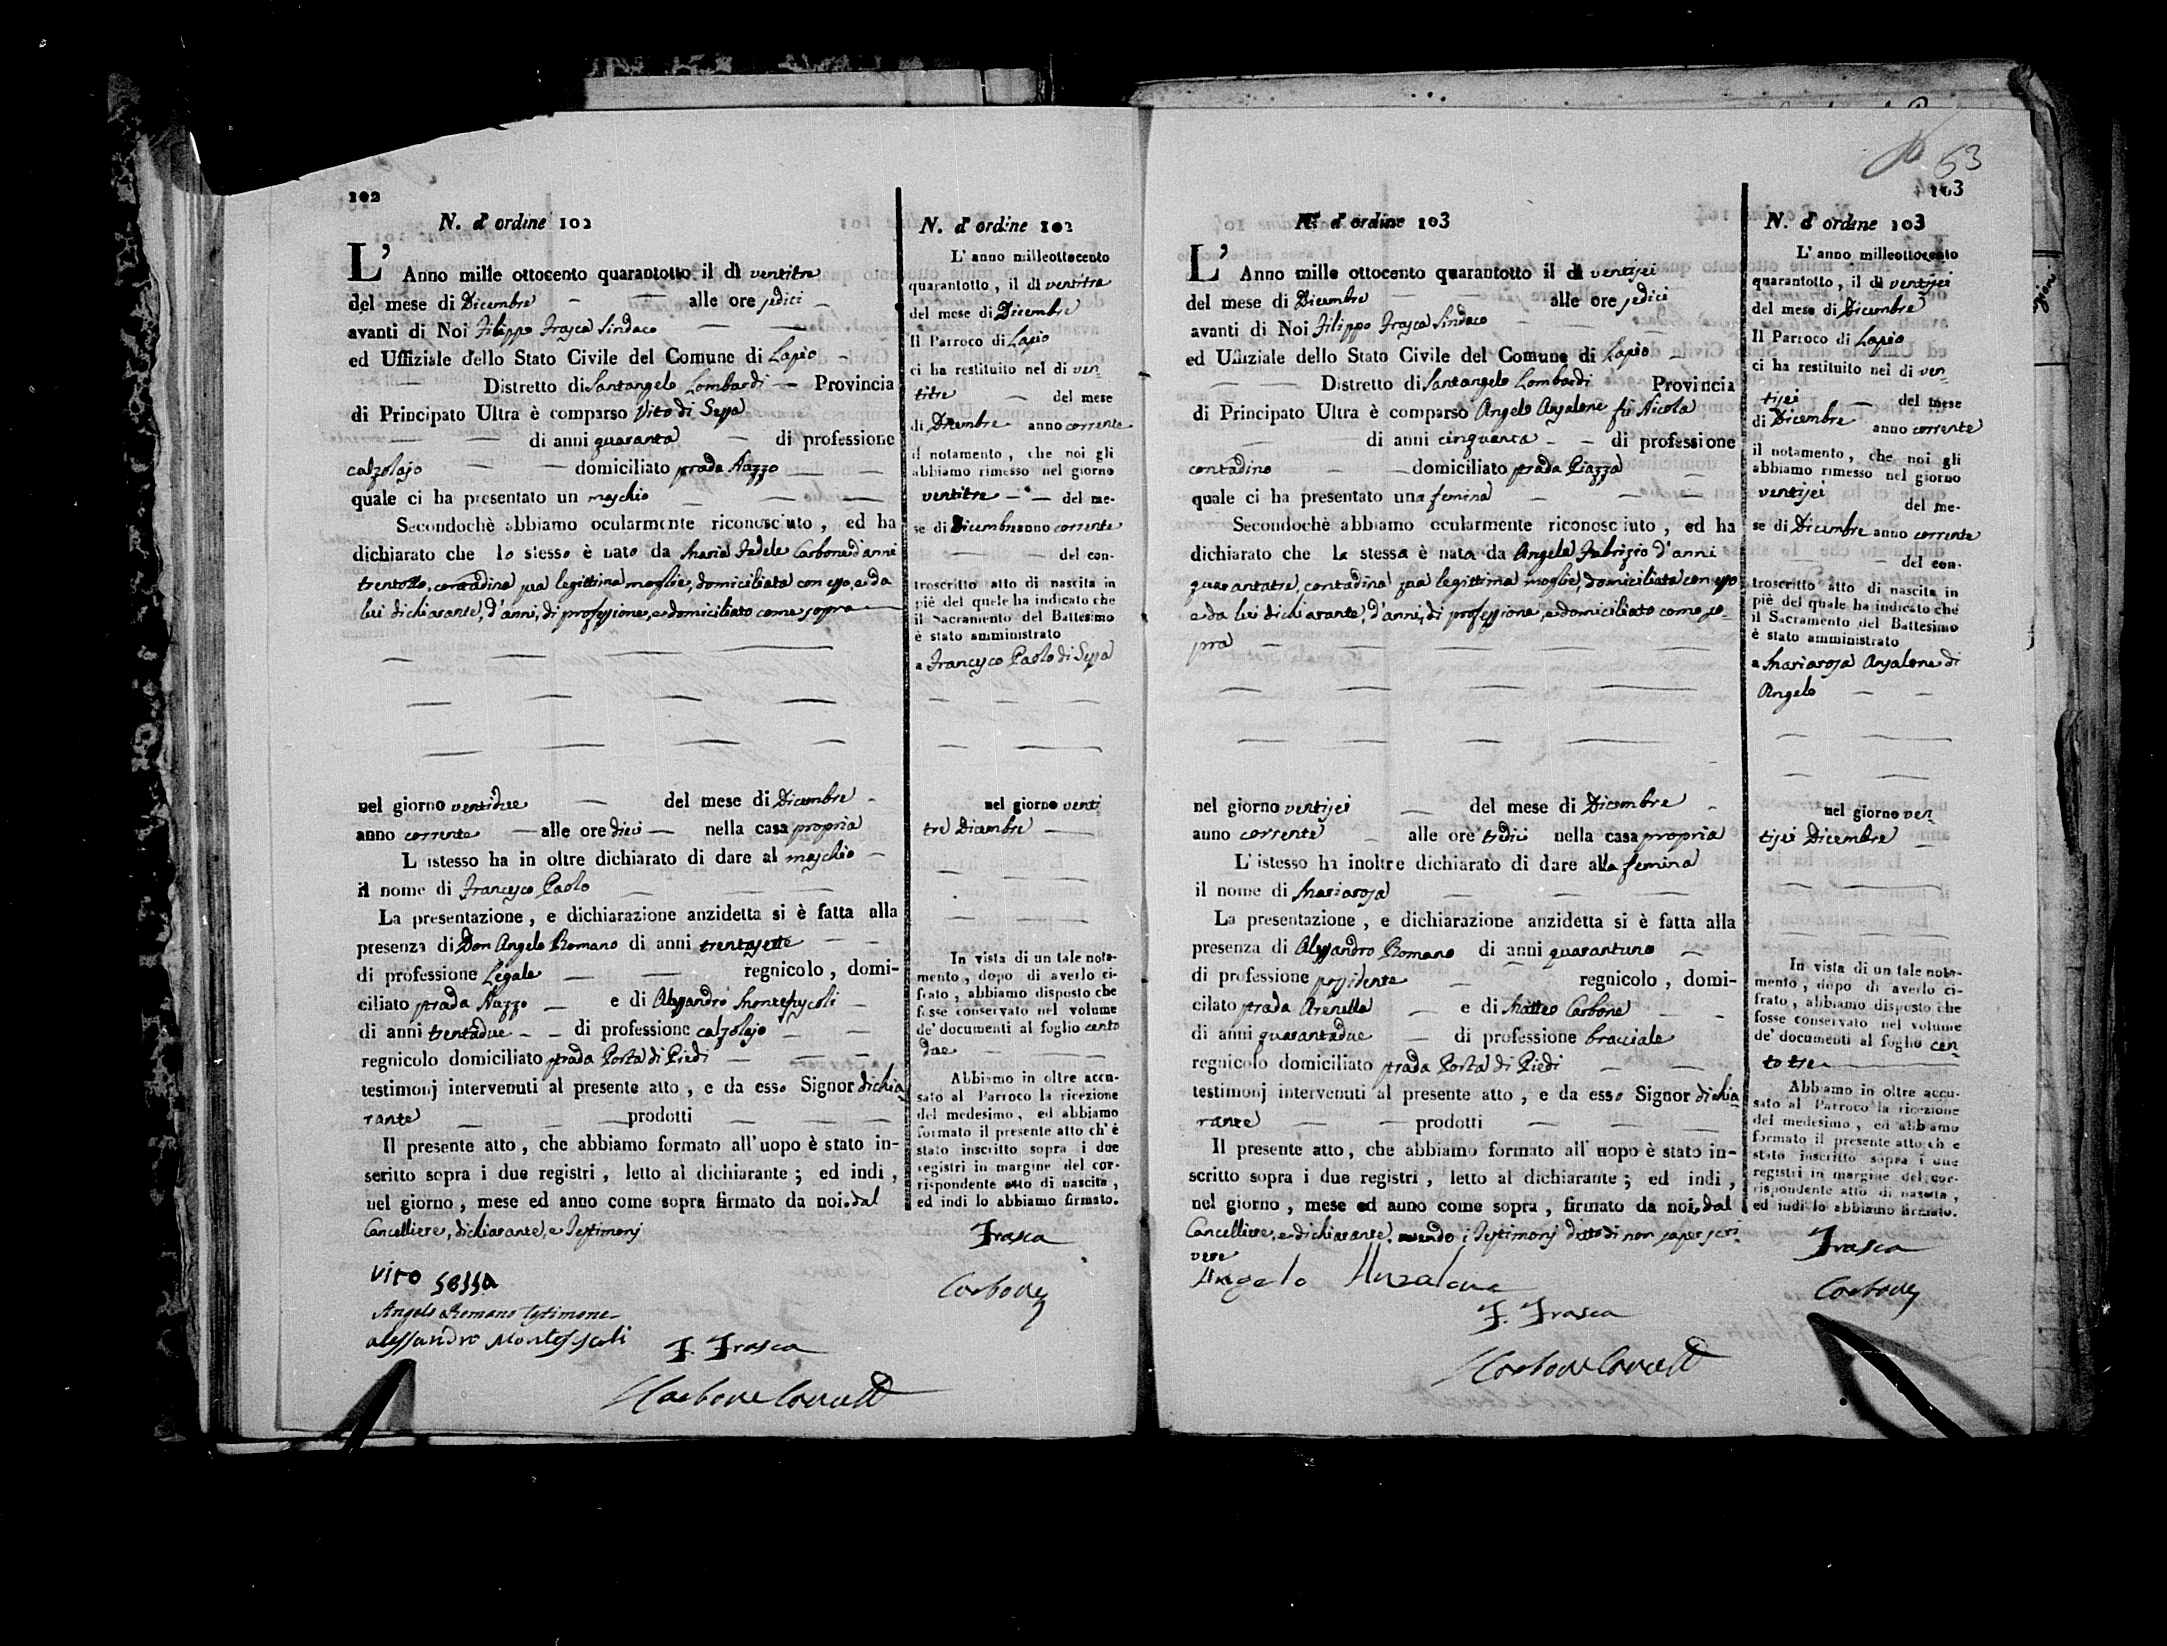 102
N. d'ordine 102
L'Anno mille ottocento quarantotto il dì ventitre
del mese di Dicembre alle ore sedici
avanti di Noi Filippo Frasca Sindaco
ed Uffiziale dello Stato Civile del Comune di Lapio
Distretto di Santangelo Lombardi Provincia
di Principato Ultra è comparso Vito di Sessa
di anni quaranta di professione
calzolajo domiciliato strada Nazzo
quale ci ha presentato un maschio
Secondochè abbiamo ocularmente riconosciuto, ed ha
dichiarato che lo stesso è nato da Maria Fedele Carbone d'anni
trentotto, contadina sua legittima moglie, domiciliata con esso, e da
lui dichiarante, d'anni, di professione, e domiciliato come sopra
nel giorno ventidue del mese di Dicembre
anno corrente alle ore dieci nella casa propria
L'istesso ha in oltre dichiarato di dare al maschio
il nome di Francesco Paolo
La presentazione, e dichiarazione anzidetta si è fatta alla
presenza di Don Angelo Romano di anni trentasette
di professione Legale regnicolo, domi-
ciliato strada Nazzo e di Alessandro Montefuscoli
di anni trentadue di professione calzolajo
regnicolo domiciliato strada Porta di Piedi
testimonj intervenuti al presente atto, e da esso Signor dichia-
rante prodotti
Il presente atto, che abbiamo formato all'uopo è stato in-
scritto sopra i due registri, letto al dichiarante; ed indi,
nel giorno, mese ed anno come sopra firmato da noi, dal
Cancelliere, dichiarante, e Testimonj
Vito Sessa
Angelo Romano testimone
Alessandro Montefuscoli
F. Frasca
Carbone
N. d'ordine 102
L'anno milleottocento
quarantotto, il dì ventitre
del mese di Dicembre
Il Parroco di Lapio
ci ha restituito nel di ven-
titre del mese
di Dicembre anno corrente
il notamento, che noi gli
abbiamo rimesso nel giorno
ventitre del me-
se di Dicembre anno corrente
del con-
troscritto atto di nascita in
piè del quele ha indicato che
il Sacramento del Battesimo
è stato amministrato
a Francesco Paolo di Sessa
nel giorno venti
tre Dicembre
In vista di un tale nota-
mento, dopo di averlo ci-
frato, abbiamo disposto che
fosse conservato nel volume
de' documenti al foglio cento
due
Abbiamo in oltre accu-
sato al Parroco la ricezione
del medesimo, ed abbiamo
formato il presente atto ch'è
stato inscritto sopra i due
registri in margine del cor-
rispondente atto di nascita,
ed indi lo abbiamo firmato.
Frasca
Carbone
63
103
N. d'ordine 103
L'Anno mille ottocento quarantotto il dì ventisei
del mese di Dicembre alle ore sedici
avanti di Noi Filippo Frasca Sindaco
ed Uffiziale dello Stato Civile del Comune di Lapio
Distretto di Santangelo Lombardi Provincia
di Principato Ultra è comparso Angelo Anzalone fù Nicola
di anni cinquanta di professione
contadino domiciliato strada Piazza
quale ci ha presentato una femina
Secondochè abbiamo ocularmente riconosciuto, ed ha
dichiarato che la stessa è nata da Angela Fabrizio d'anni
quarantatre, contadina sua legittima moglie, domiciliata con esso
e da lui dichiarante, d'anni, di professione, e domiciliato come so-
pra
nel giorno ventisei del mese di Dicembre
anno corrente alle ore tredici nella casa propria
L'istesso ha inoltre dichiarato di dare alla femina
il nome di Mariarosa
La presentazione, e dichiarazione anzidetta si è fatta alla
presenza di Alessandro Romano di anni quarantuno
di professione possidente regnicolo, domi-
cilato strada Arenella e di Matteo Carbone
di anni quarantadue di professione bracciale
regnicolo domiciliato strada Porta di Piedi
testimonj intervenuti al presente atto, e da esso Signor dichia-
rante prodotti
Il presente atto, che abbiamo formato all'uopo è stato in-
scritto sopra i due registri, letto al dichiarante; ed indi,
nel giorno, mese ed anno come sopra, firmato da noi, dal
Cancelliere, e dichiarante, avendo i Testimonj detto di non saper scri-
vere
Angelo Anzalone
F. Frasca
Carbone
N. d'ordine 103
L'anno milleottocento
quarantotto, il dì ventisei
del mese di Dicembre
Il Parroco di Lapio
ci ha restituito nel di ven-
tisei del mese
di Dicembre anno corrente
il notamento, che noi gli
abbiamo rimesso nel giorno
ventisei del me-
se di Dicembre anno corrente
del con-
troscritto atto di nascita in
piè del quale ha indicato che
il Sacramento del Battesimo
è stato amministrato
a Mariarosa Anzalone di
Angelo
nel giorno ven-
tisei Dicembre
In vista di un tale nota-
mento, dopo di averlo ci-
frato, abbiamo disposto che
fosse conservato nel volume
de' documenti al foglio cen-
to tre
Abbiamo in oltre accu-
sato al Parroco la ricezione
del medesimo, ed abbiamo
formato il presente atto ch'è
stato inscritto sopra i due
registri in margine del cor-
rispondente atto di nascita,
ed indi lo abbiamo firmato.
Frasca
Carbone